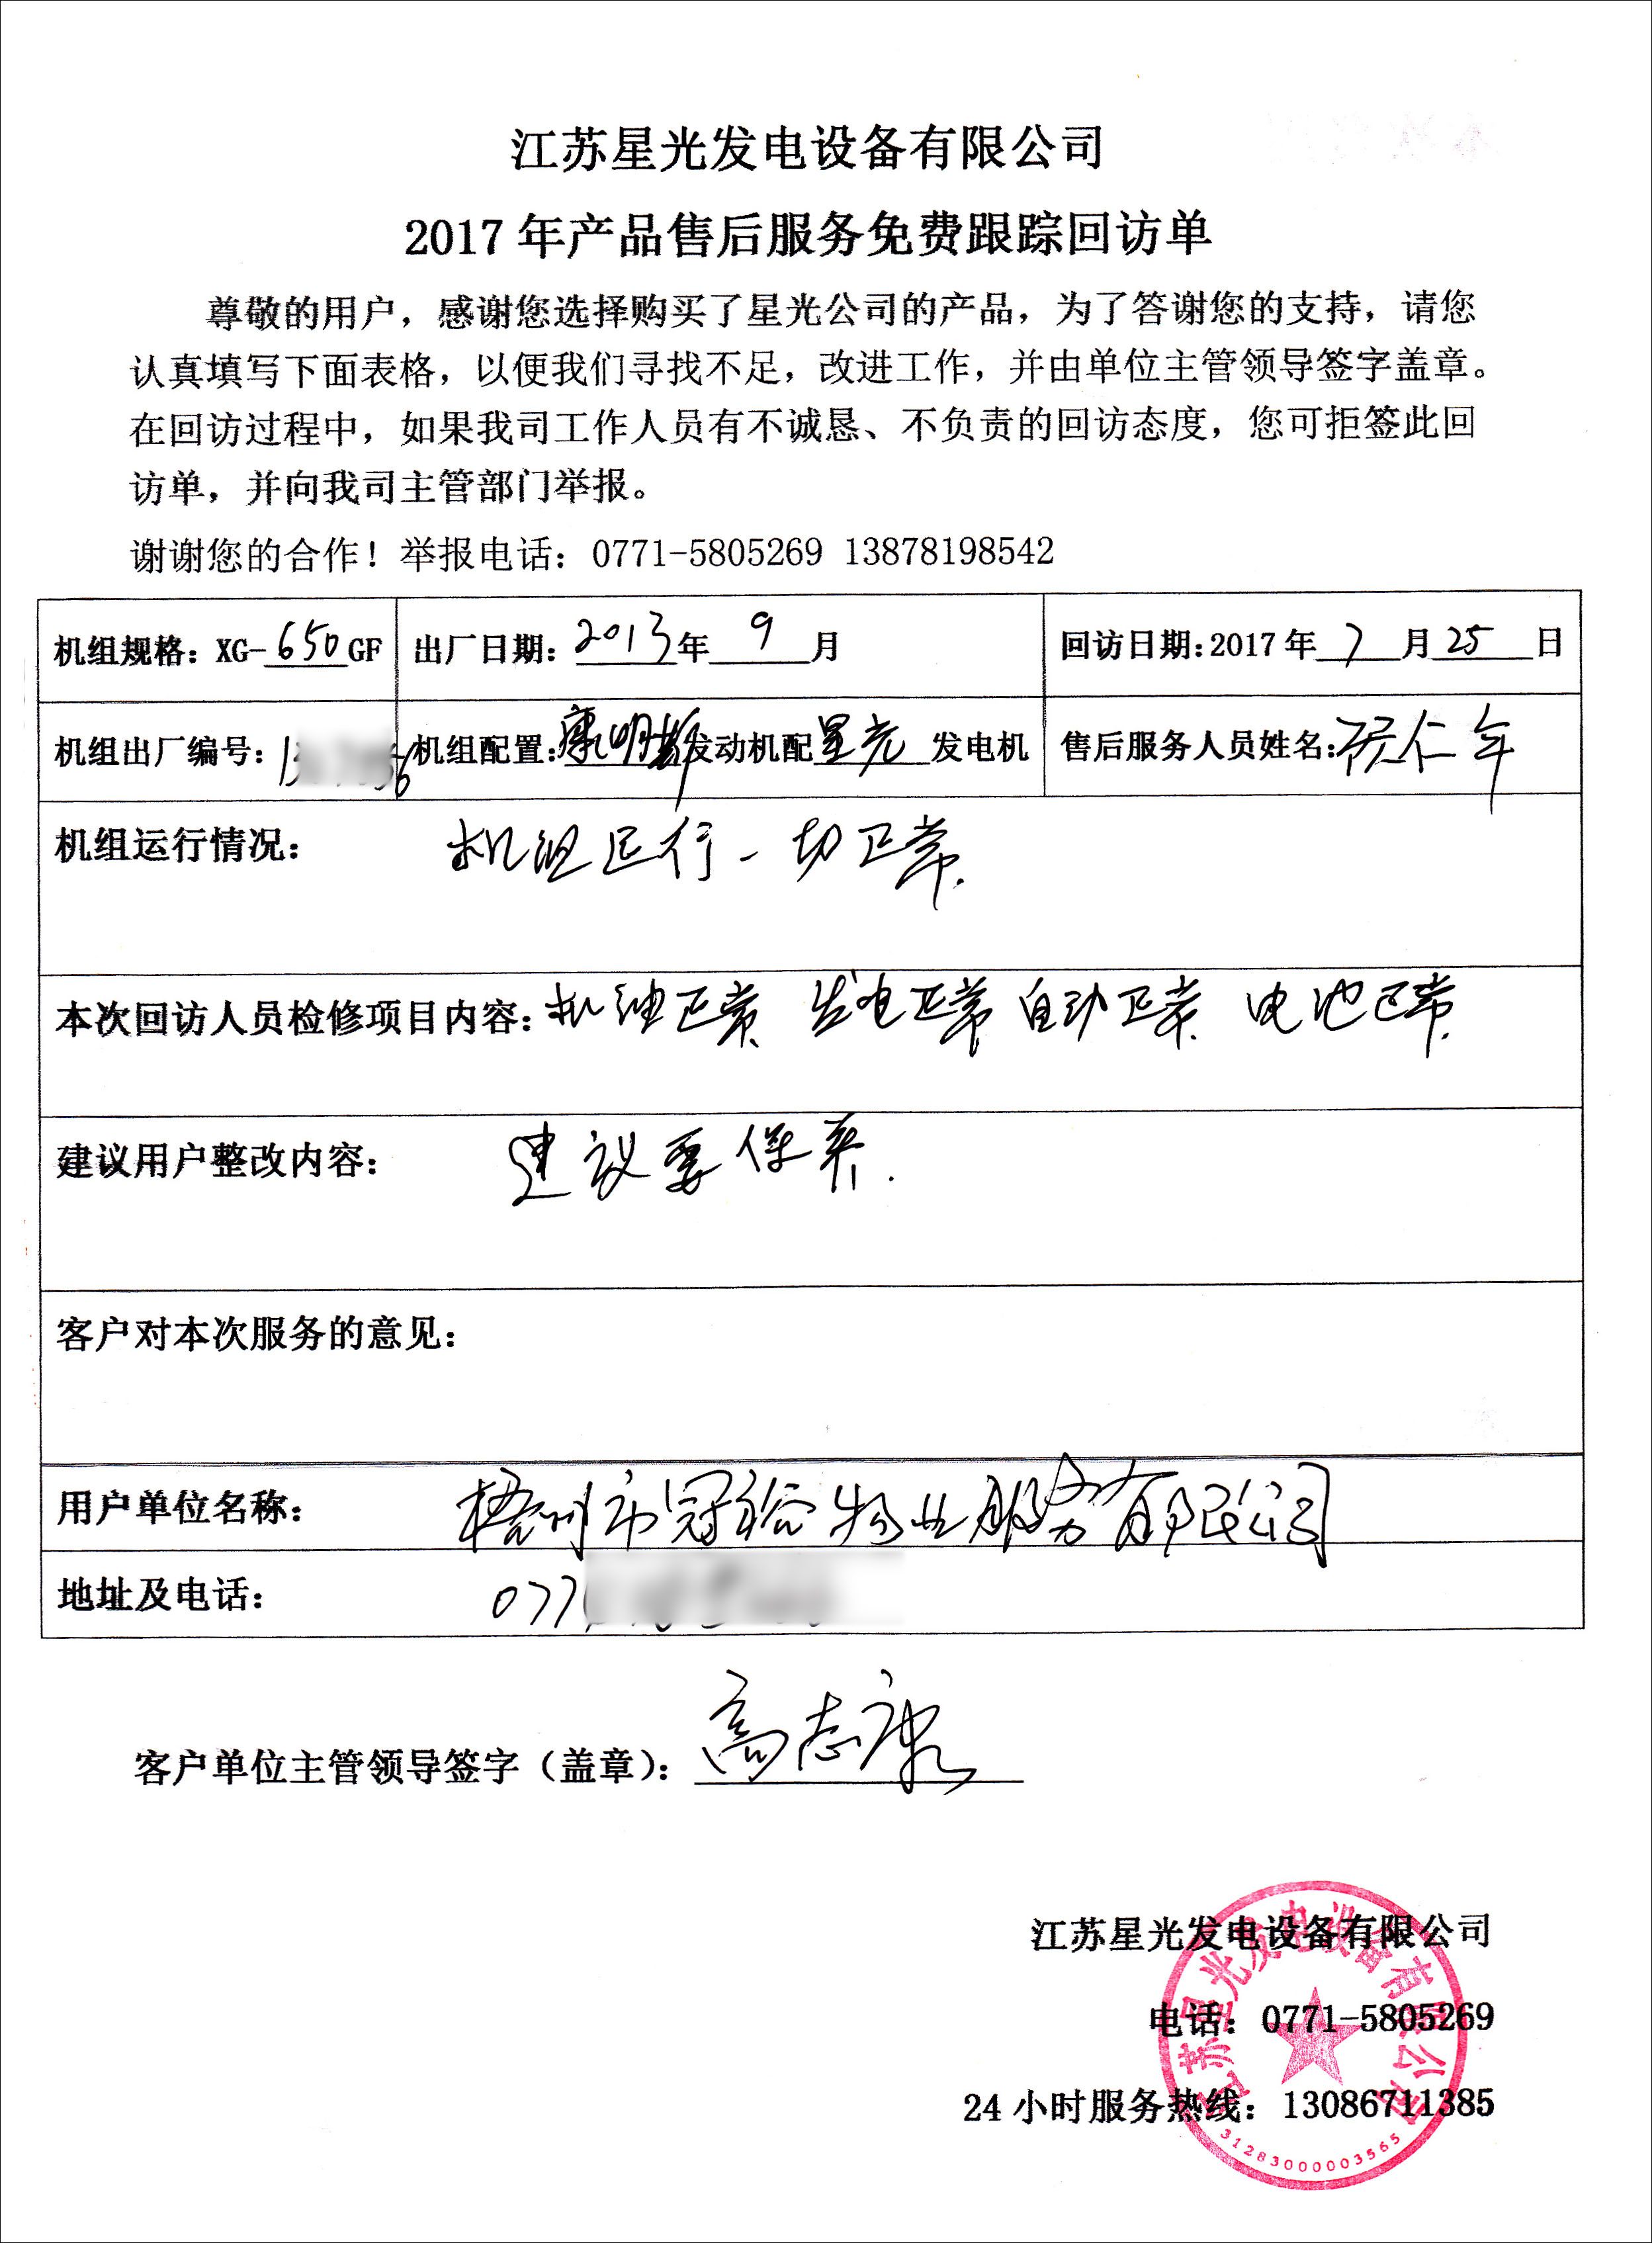 江苏星光发电设备有限公司
2017年产品售后服务免费跟踪回访单
尊敬的用户，感谢您选择购买了星光公司的产品，为了答谢您的支持，请您
认真填写下面表格，以便我们寻找不足，改进工作，并由单位主管领导签字盖章。
在回访过程中，如果我司工作人员有不诚恳、不负责的回访态度，您可拒签此回
访单，并向我司主管部门举报。
谢谢您的合作！举报电话：0771-5805269 13878198542
机组规格：XG-650GF 出厂日期：2013年9月 回访日期：2017年7月25日
机组出厂编号： 机组配置：康明斯发动机配星光发电机 售后服务人员姓名：仁年
机组运行情况： 机组运行一切正常.
本次回访人员检修项目内容：机油正常 发电正常 自动正常 电池正常.
建议用户整改内容： 建议要保养.
客户对本次服务的意见：
用户单位名称： 梧州市冠裕物业服务有限公司
地址及电话： 077
客户单位主管领导签字（盖章）：高志康
江苏星光发电设备有限公司
电话：0771-5805269
24小时服务热线：13086711385
江苏星光发电设备有限公司
31283000003565